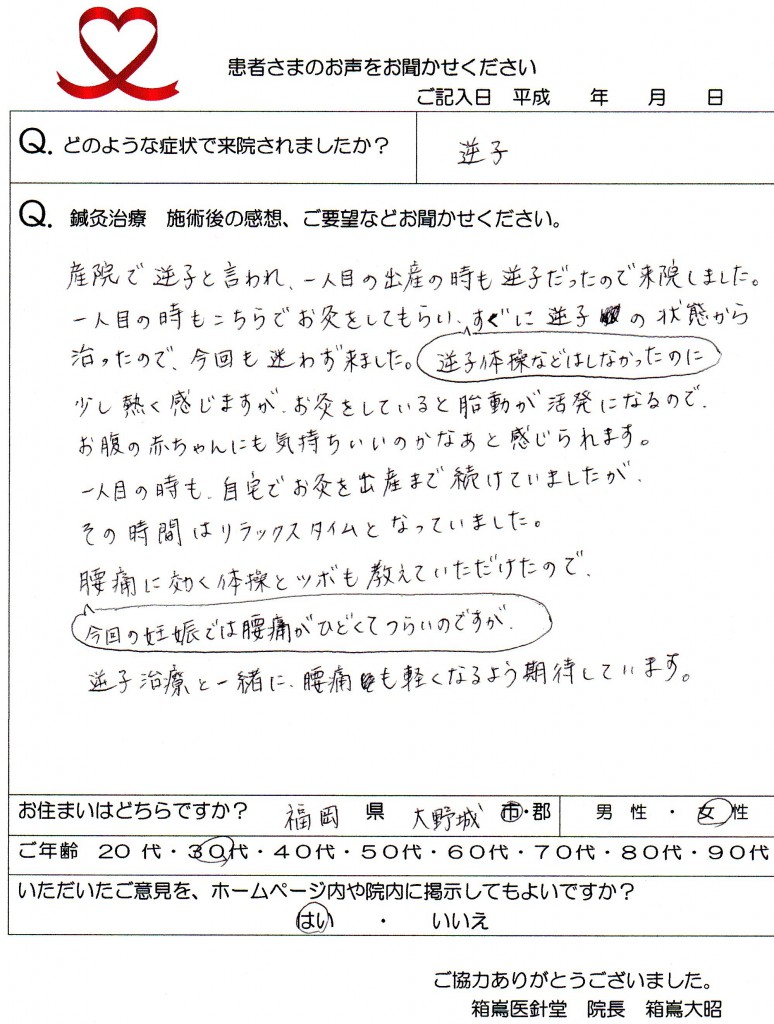 患者さまのお声をお聞かせください
ご記入日 平成 年 月 日
Q. どのような症状で来院されましたか？ 逆子
Q. 鍼灸治療 施術後の感想、ご要望などお聞かせください。
産院で逆子と言われ、一人目の出産の時も逆子だったので来院しました。
一人目の時もこちらでお灸をしてもらい、すぐに逆子の状態から
治ったので、今回も迷わず来ました。 逆子体操などはしなかったのに
少し熱く感じますが、お灸をしていると胎動が活発になるので、
お腹の赤ちゃんにも気持ちいいのかなあと感じられます。
一人目の時も、自宅でお灸を出産まで続けていましたが、
その時間はリラックスタイムとなっていました。
腰痛に効く体操とツボも教えていただけたので、
今回の妊娠では腰痛がひどくてつらいのですが、
逆子治療と一緒に、腰痛も軽くなるよう期待しています。
お住まいはどちらですか？ 福岡 県 大野城 市・郡 男性・女性
ご年齢 20代・30代・40代・50代・60代・70代・80代・90代
いただいたご意見を、ホームページ内や院内に掲示してもよいですか？
はい ・ いいえ
ご協力ありがとうございました。
箱嶌医針堂 院長 箱嶌大昭